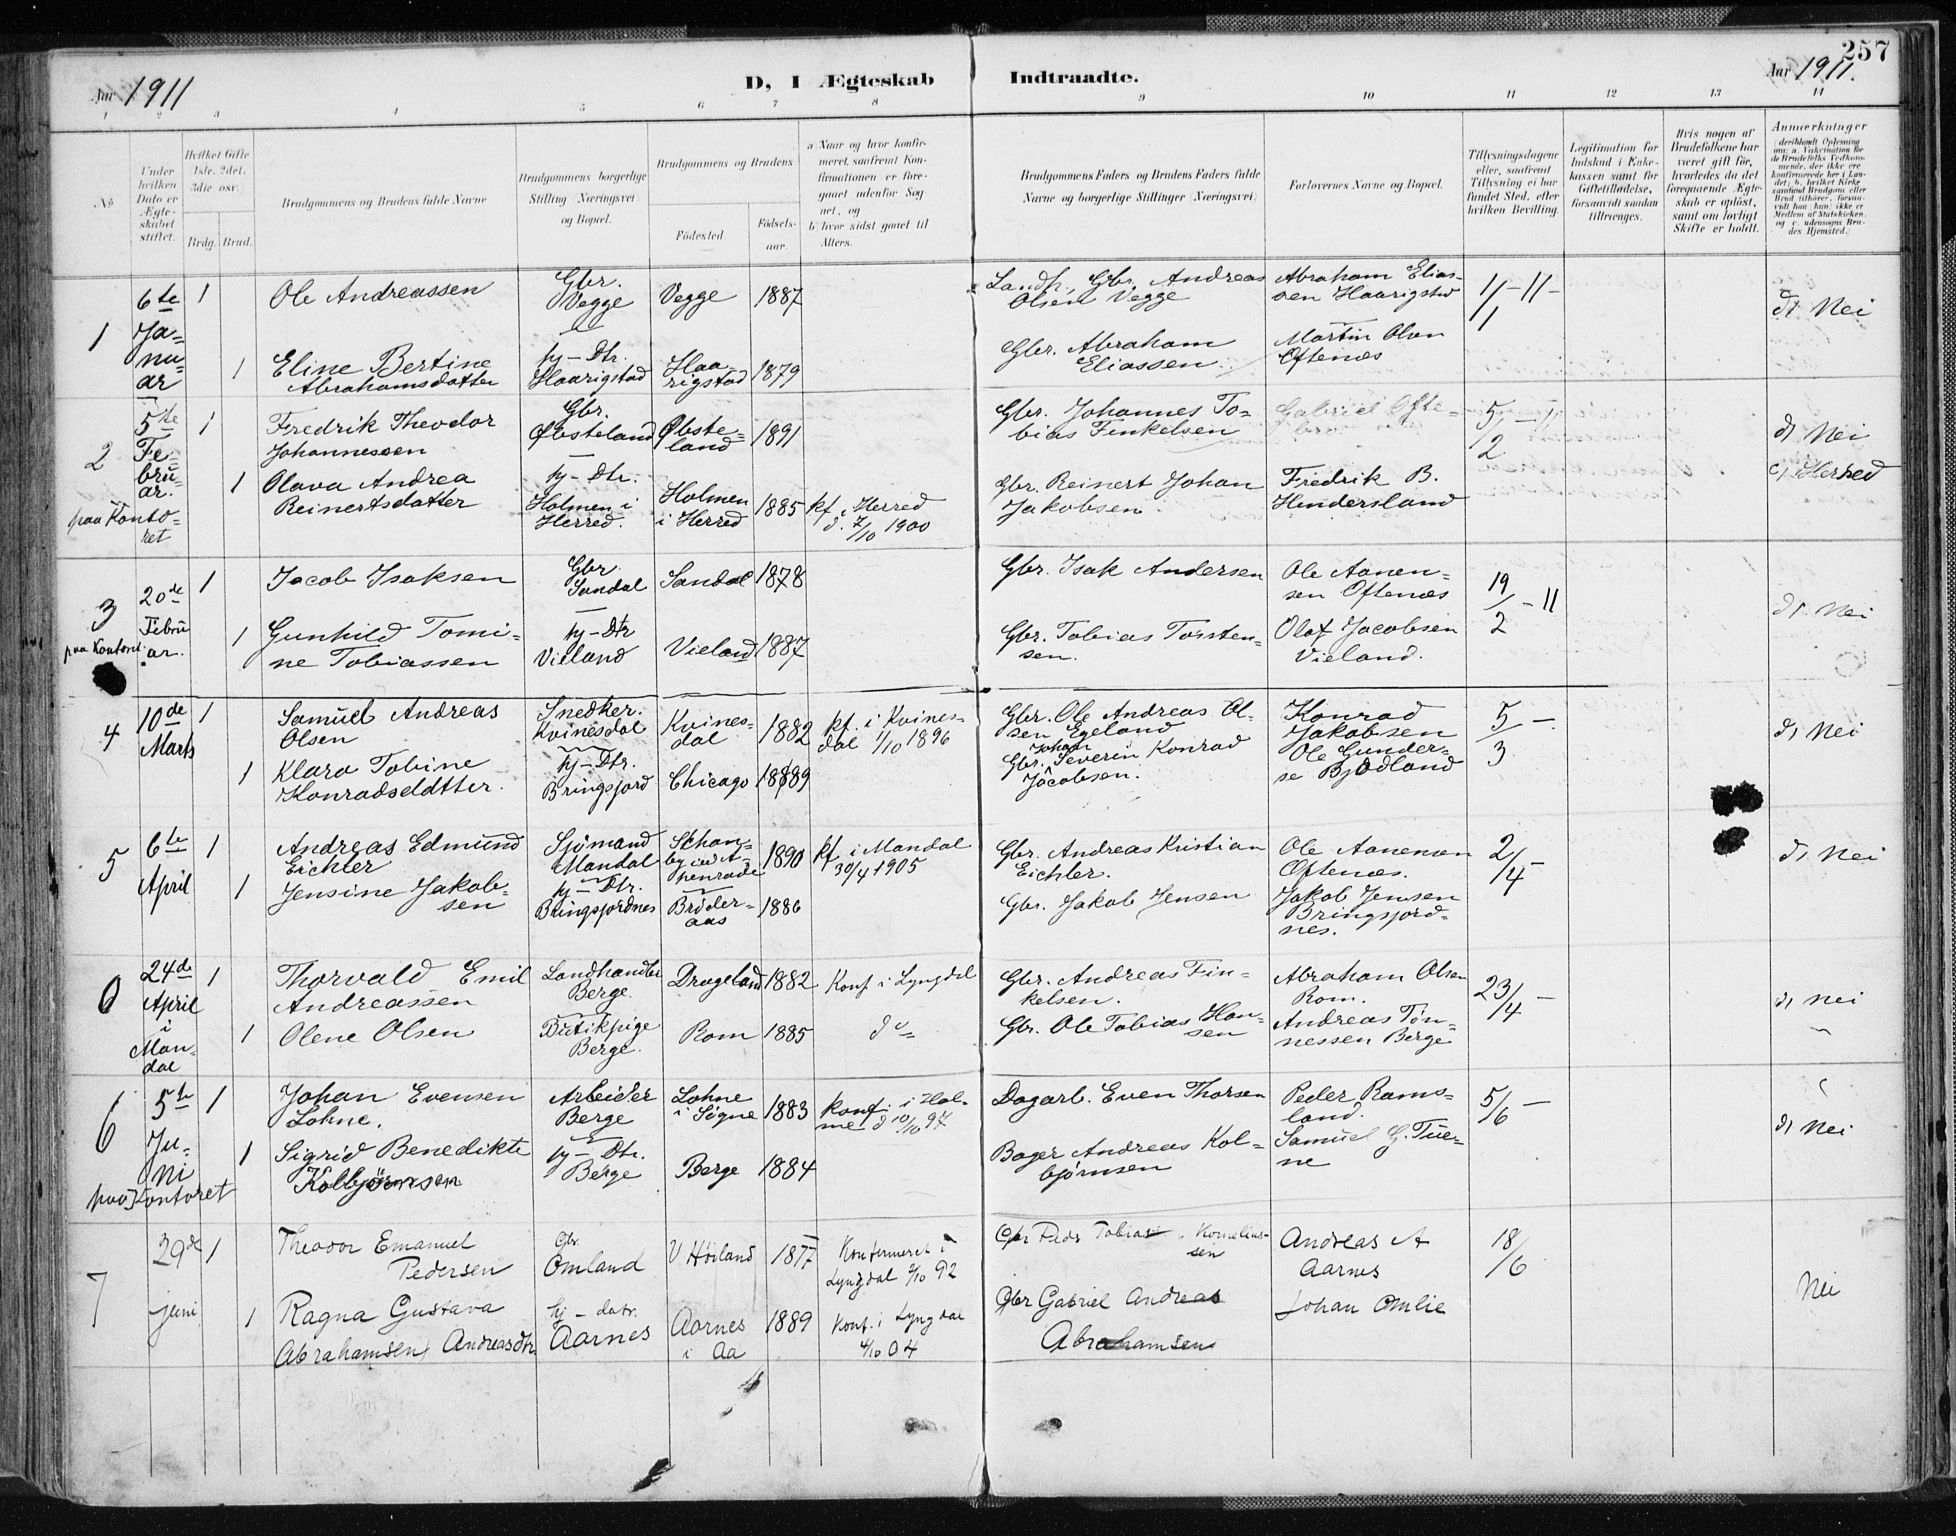 257
Aar 1911
D, I Ægteskab Indtraadte.
Aar 1911.
1 2 3 4 5 6 7 8 9 10 11 12 13 14
No
Under hvilken Dato er Ægteskabet stiftet.
Hvilket Gifte 1ste. 2det. 3die osv.
Brdg. Brud.
Brudgommens og Brudens fulde Navne
Brudgommens borgerlige Stilling (Næringsvei) og Bopæl.
Brudgommens og Brudens
Fødested.
Fødselsaar.
a Naar og hvor konfirmeret, saafremt Konfirmationen er foregaaet udenfor Sognet, og
b hvor sidst gaaet til Alters.
Brudgommens Faders og Brudens Faders fulde Navne og borgerlige Stillinger (Næringsvei)
Forlovernes Navne og Bopæl.
Tillysningsdagene eller, saafremt Tillysning ei har fundet Sted, efter hvilken Bevilling.
Legitimation for Indskud i Enkekassen samt for Giftetilladelse, forsaavidt saadan tiltrænges.
Hvis nogen af Brudefolkene har været gift før, hvorledes da det foregaaende Ægteskab er opløst, samt om lovligt Skifte er holdt.
Anmærkninger
1
6te Januar
1
Ole Andreassen
Gbr. Vegge
Vegge
1887
Landh, Gbr. Andreas Olsen Vegge
Abraham Eliassen Haarigstad
1/1-11-
d, Nei
1
Eline Bertine Abrahamsdatter
hj-Dtr. Haarigstad
Haarigstad
1879
Gbr. Abraham Eliassen
Martin Olsen Oftenæs
2
5te Februar.
paa Kontoret
1
Fredrik Theodor Johannessen
Gbr. Øbsteland
Øbsteland
1891
Gbr. Johannes Tobias Finkelsen
Gabriel Ofte-
5/2-11
d, Nei
1
Olava Andrea Reinertsdatter
hj-Dtr. Holmen i Herred.
Holmen i Herred
1885
kf. i Herred d. 7/10 1900
Gbr. Reinert Johan Jakobsen
Fredrik B. Hindersland
c, Herred
3
20de Februar.
paa Kontoret
1
Jacob Isaksen
Gbr. Sandal
Sandal
1878
Gbr. Isak Andersen
Ole Aanensen Oftenæs
19/2-11
d, Nei
1
Gunhild Tomine Tobiassen
hj-Dtr Vieland
Vieland
1887
Gbr. Tobias Torstensen.
Olaf Jacobsen Vieland.
4
10de Marts
1
Samuel Andreas Olsen
Snedker. Kvinesdal
Kvinesdal
1882
kf. i Kvinesdal 1/10 1896
Gbr. Ole Andreas Olsen Egeland
Konrad Jakobsen
5/3 -
d, Nei
1
Klara Tobine Konradsddtter.
hj-Dtr. Bringsjord
Chicago
1889
Gbr. Johan Severin Konrad Jacobsen.
Ole Gunderse Bjødland
5
6te April
1
Andreas Edmund Eichler
Sjømand Mandal
1890
kf. i Mandal 30/4 1905
Gbr. Andreas Kristian Eichler.
Ole Aanensen Oftenæs.
2/4-
d, Nei
1
Jensine Jakobsen
hj-Dtr. Bringsjordnes
Brøderaas
1886
Gbr. Jakob Jensen
Jakob Jensen Bringsjordnes.
0
24de April i Mandal
1
Thorvald Emil Andreassen
Landhandler Berge.
Drageland
1882
Konf i Lyngdal
Gbr. Andreas Finkelsen.
Abraham Olsen Rom.
23/4 -
d, Nei
1
Olene Olsen
Butikpige Berge.
Rom
1885
do
Gbr. Ole Tobias Hansen
Andreas Tønnessen Berge
6
5te Juni
paa Kontoret
1
Johan Evensen Lohne.
Arbeider Berge
Lohne i Søgne
1883
konf. i Holme d 10/10 97
Dagarb. Even Thorsen
Peder Ramsland.
5/6 -
d, Nei
1
Sigrid Benedikte Kolbjørnsen
hj-Dtr. Berge
Berge
1884
Bager Andreas Kolbjørnsen
Samuel G. Tuene
7
29de juni
1
Theodor Emanuel Pedersen
Gbr. Omland
V Høiland
1877
Konfirmeret i Lyngdal 2/10 92
Gbr Peder Tobias Korneliussen
Andreas A Aarnes
18/6
Nei
1
Ragna Gustava Abrahamsen, Andreasdtr
hj-datr. Aarnes
Aarnes i Aa
1889
Konf. i Lyngdal 4/10 04
Gbr Gabriel Andreas Abrahamsen
Johan Omlie